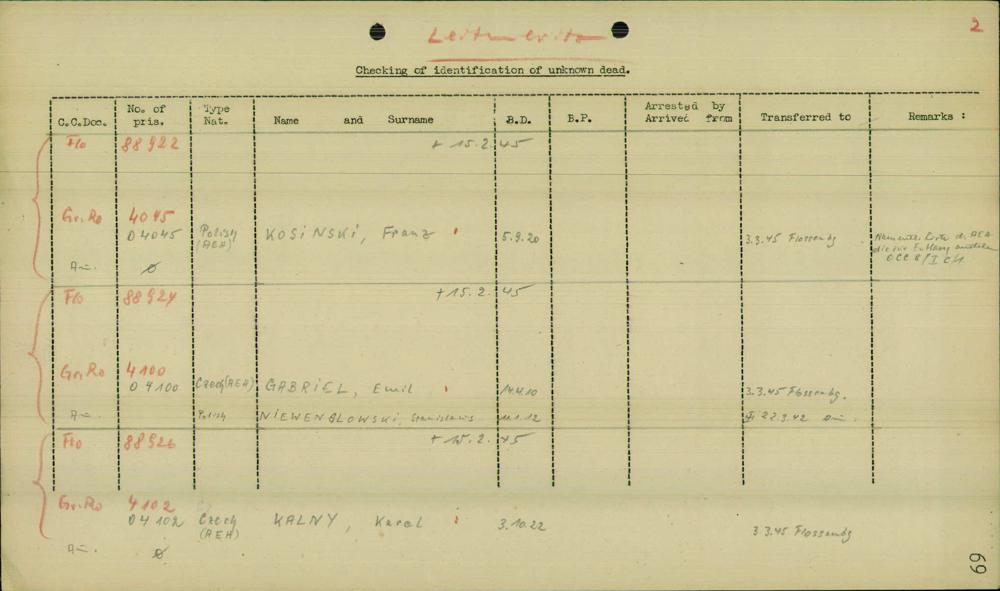 Leitmeritz 2
Checking of identification of unknown dead.
C.C.Doc. No. of pris. Type Nat. Name and Surname B.D. B.P. Arrested by Arrived from Transferred to Remarks :
Flo 88922 + 15.2.45
Gr.Ro 4045
04045 Polish (AEH) KOSINSKI, Franz 5.9.20 3.3.45 Flossenbg
Flo 88924 + 15.2.45
Gr.Ro 4100
04100 Czech (AEH) GABRIEL, Emil 14.4.10 3.3.45 Flossenbg.
Polish NIEWENGLOWSKI, Stanislaus 11.1.12 22.9.42
Flo 88926 + 15.2.45
Gr.Ro 4102
04102 Czech (AEH) KALNY, Karel 3.10.22 3.3.45 Flossenbg
69